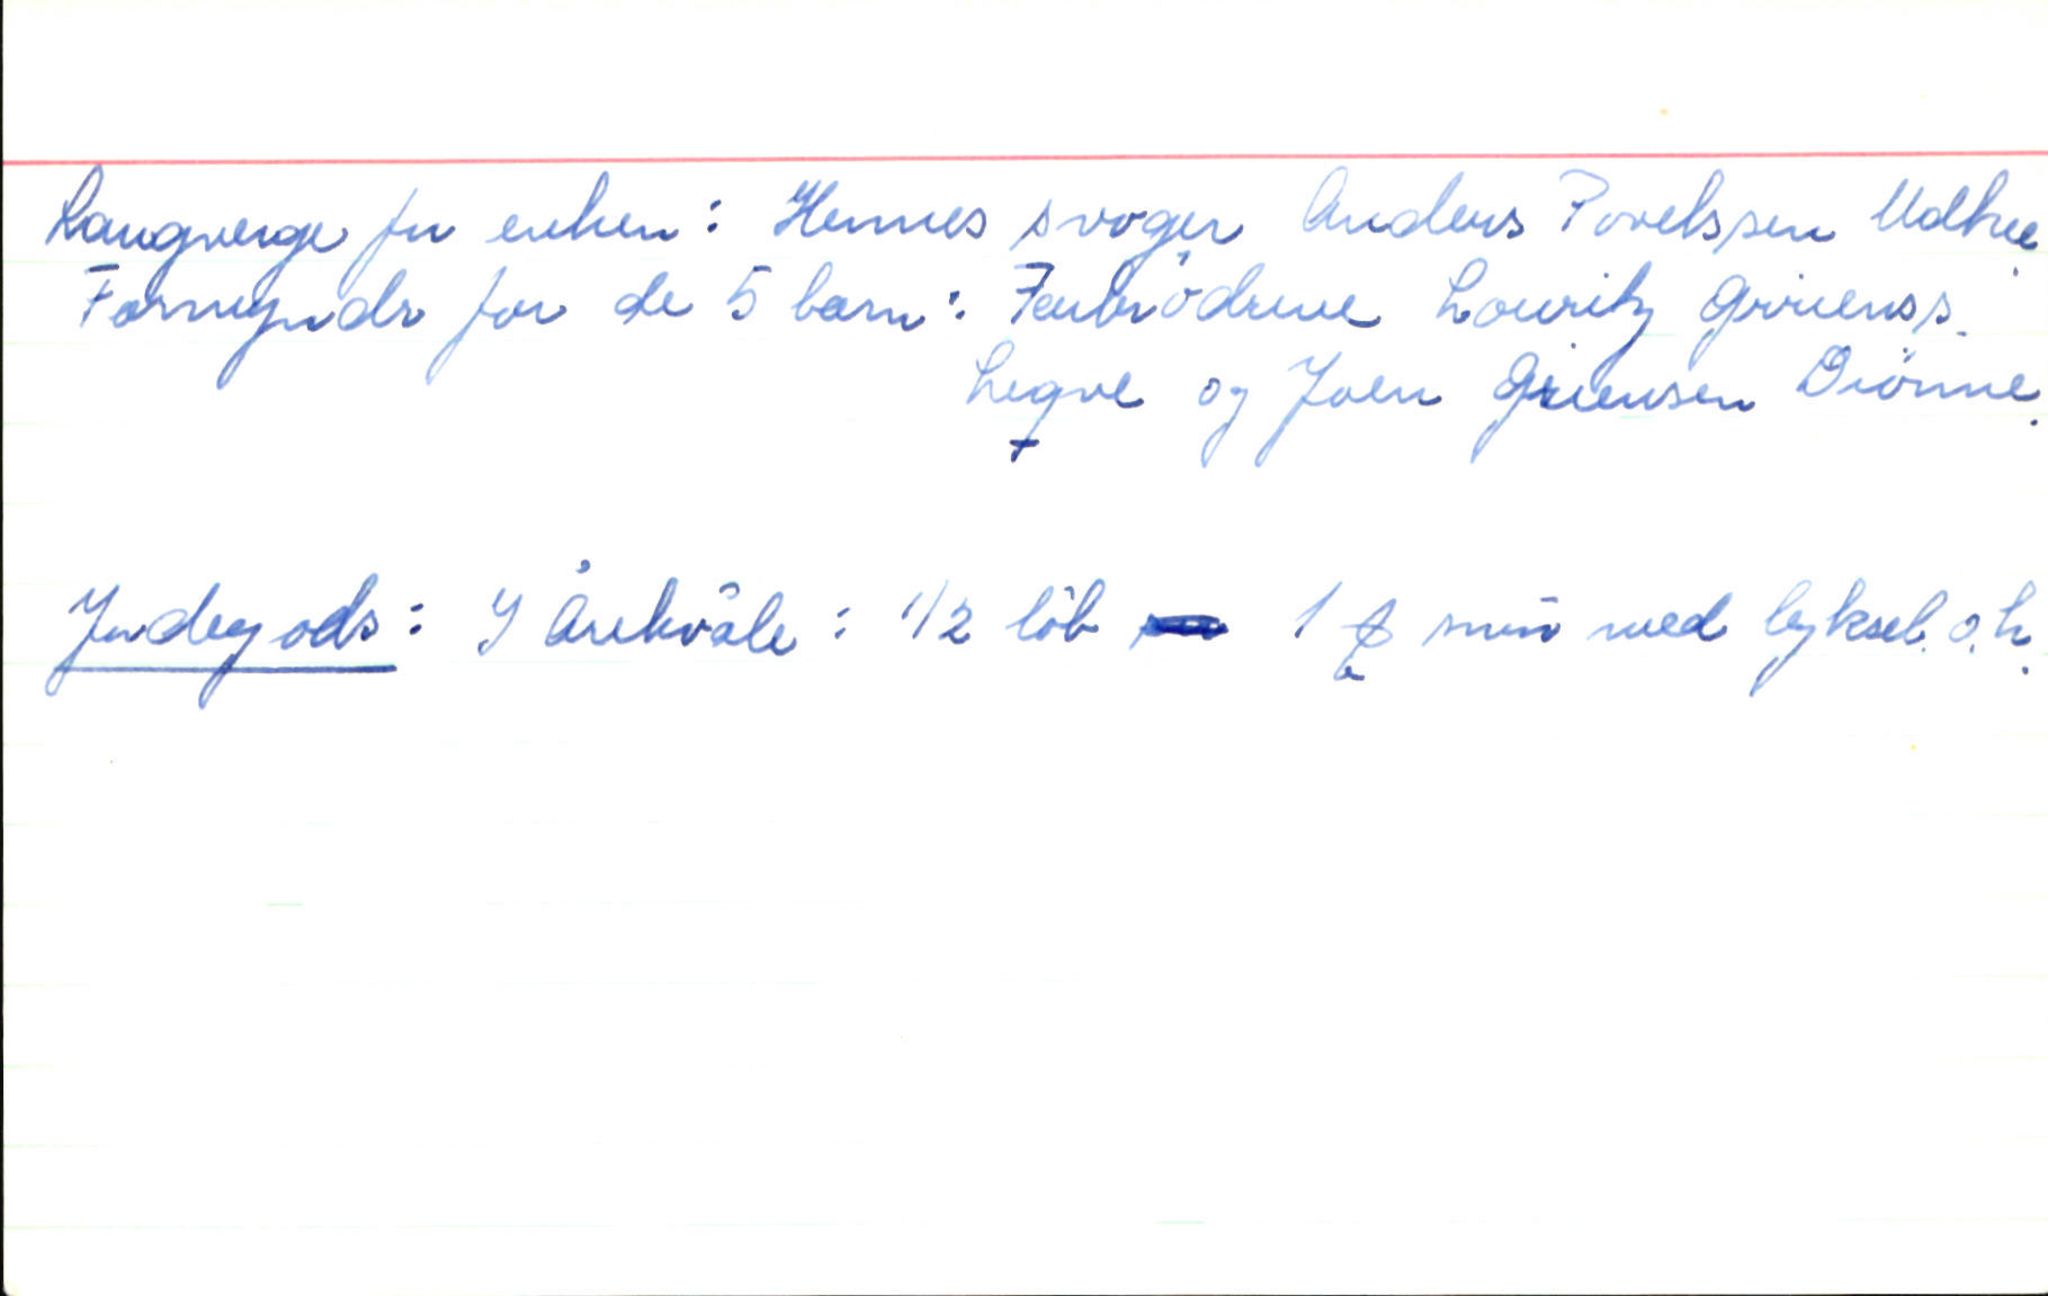 Laugverge for enken: Hennes svoger Anders Povelssen Udhee
Formyndr for de 5 barn: Farbrödrene Louritz Griienss.
Legve og Joen Griiensen Diönne.
Jndegods: I Årekvåle: 1/2 löb 1 smör med byksel o. h.